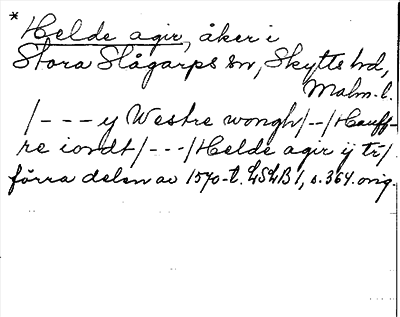 * Helde agir, åker i
Stora Slågarps sn, Skytts hd,
Malm. l.
/---y Westre wongh/--/Hauff-
re iordt/---/Helde agir ij tr/
förra delen av 1570-t. LSLB 1, s. 364. orig.